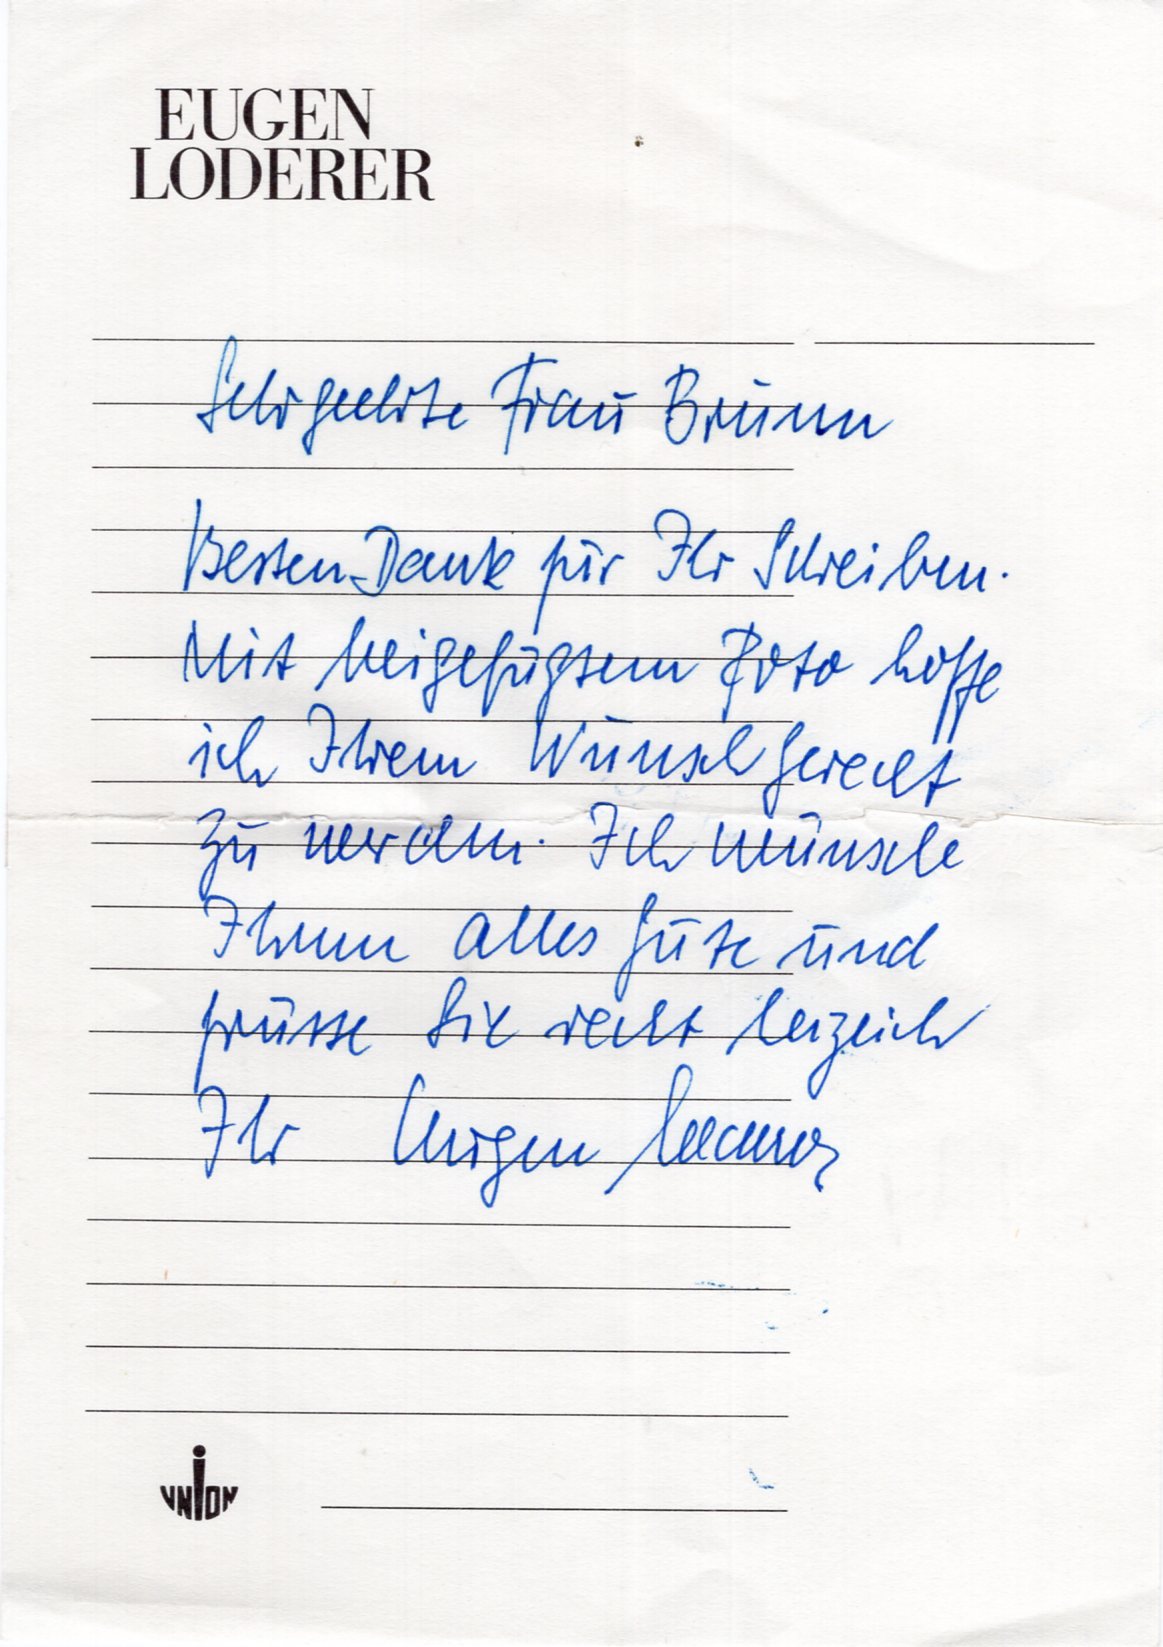 EUGEN
LODERER
Sehr geehrte Frau Brunn
Besten Dank für Ihr Schreiben.
Mit beigefügtem Foto hoffe
ich Ihrem Wunsch gerecht
zu werden. Ich wünsche
Ihnen alles Gute und
grüsse Sie recht herzlich
Ihr Eugen Loderer
UNION